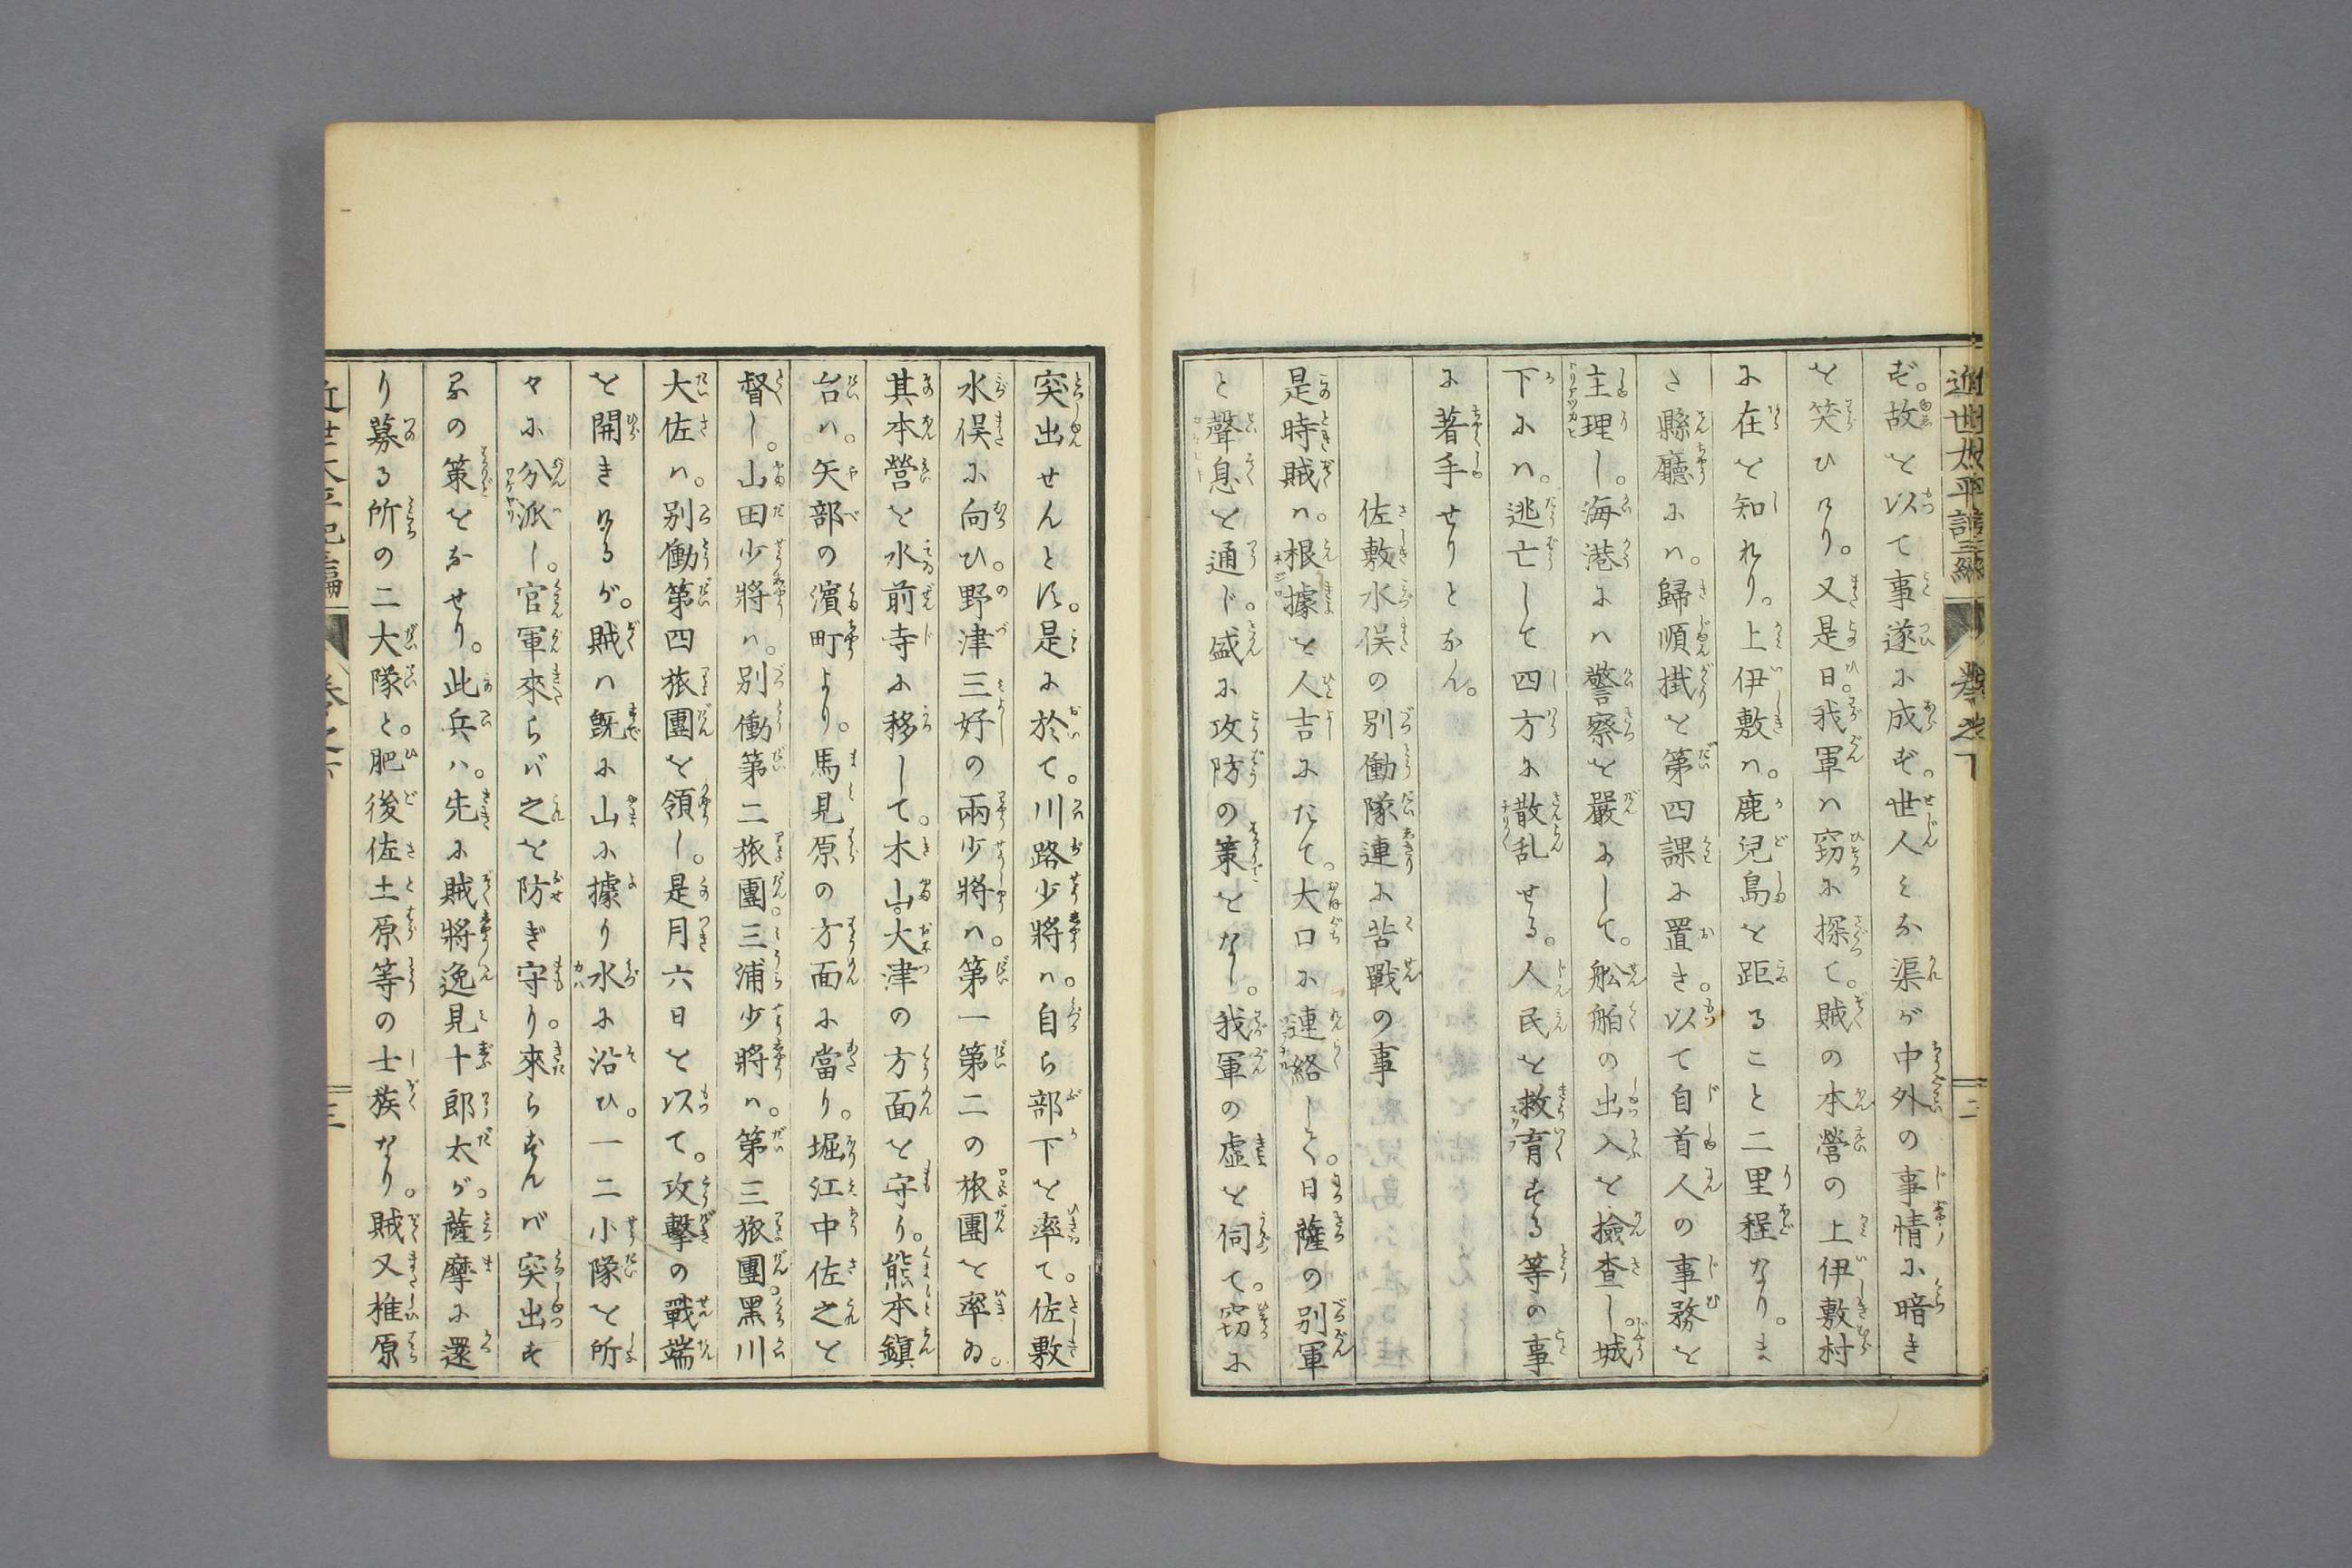 ず。故を以て事遂に成らず。世人みな渠が中外の事情に暗き
を笑ひけり。又是日。我軍ハ窃に探て。賊の本營の上伊敷村
に在を知れり。上伊敷ハ。鹿児島を距ること二里程なり。ま
さ縣廳にハ。歸順掛を第四課に置き。以て自首人の事務を
主理し。海港にハ警察を嚴にして。舩舶の出入を撿査し。城
下にハ。逃亡して四方に散乱せる。人民を救育する等の事
に著手せりとなん。
佐敷水俣の別働隊連に苦戰の事
是時賊ハ。根據を人吉にたて。大口に連絡して。日薩の別軍
と聲息を通じ。盛に攻防の策をなし。我軍の虚を伺て。窃に
突出せんとす。是に於て。川路少將ハ。自ら部下を率て。佐敷
水俣に向ひ。野津三好の兩少將ハ。第一第二の旅團を率ゐ。
其本營を水前寺に移して。木山大津の方面を守り。熊本鎭
台ハ。矢部の濱町より。馬見原の方面に當り。堀江中佐之を
督し。山田少將ハ。別働第二旅團。三浦少將ハ。第三旅團。黑川
大佐ハ。別働第四旅團を領し。是月六日を以て。攻擊の戰端
を開きけるが。賊ハ既に山に據り水に沿ひ。一二小隊を所
々に分派し。官軍來らバ之を防ぎ守り。來らずんバ突出す
るの策をなせり。此兵ハ。先に賊將逸見十郎太が。薩摩に還
り募る所の二大隊と。肥後佐土原等の士族なり。賊又椎原